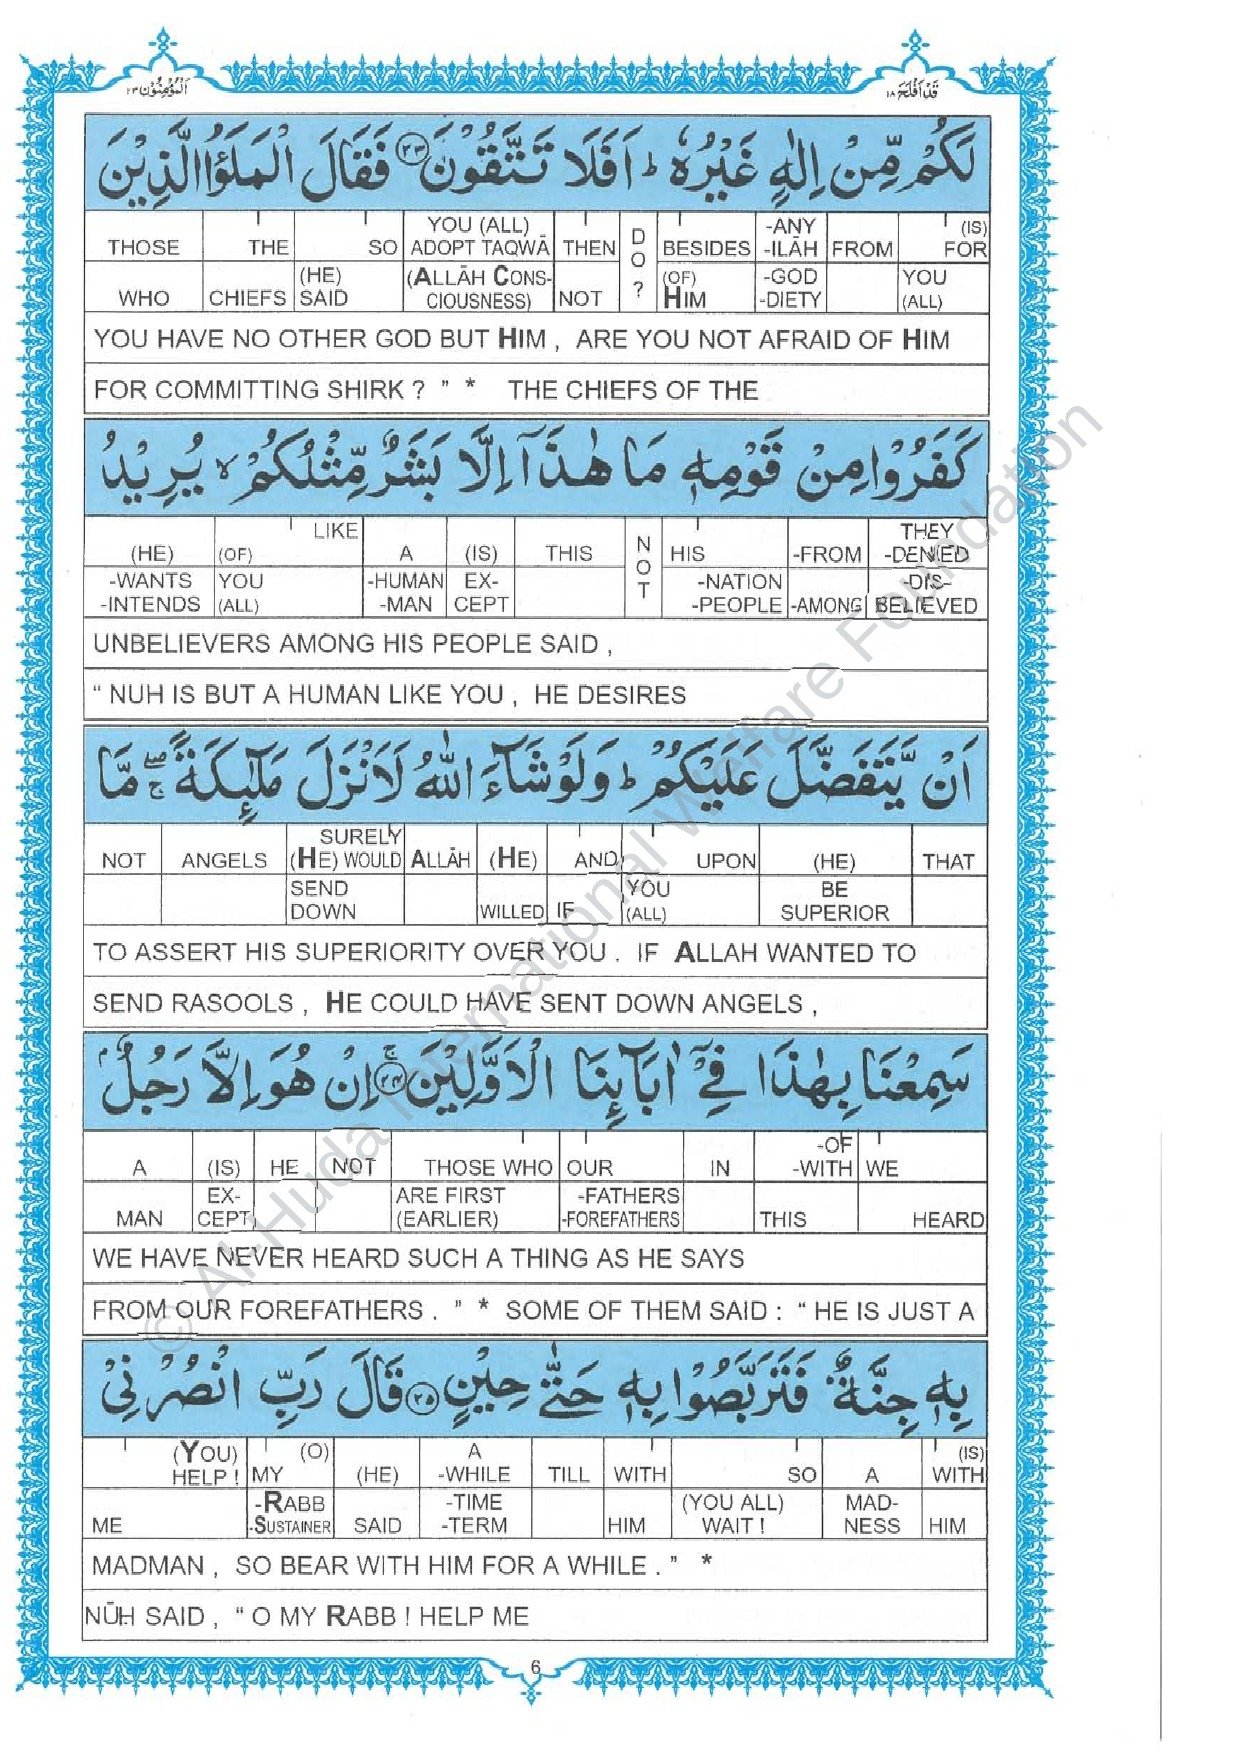 المؤمنون ٢٣
قد افلح ١٨
لَكُمْ مِّنْ اِلٰهٍ غَيْرُهٗ ؕ اَفَلَا تَتَّقُوْنَ ۝٢٣ فَقَالَ الْمَلَؤُا الَّذِيْنَ
THOSE THE SO YOU (ALL) ADOPT TAQWĀ THEN DO? BESIDES -ANY -ILĀH FROM (IS) FOR
WHO CHIEFS (HE) SAID (ALLĀH CONS-CIOUSNESS) NOT (OF) HIM -GOD -DIETY YOU (ALL)
YOU HAVE NO OTHER GOD BUT HIM , ARE YOU NOT AFRAID OF HIM
FOR COMMITTING SHIRK ? ” * THE CHIEFS OF THE
كَفَرُوْا مِنْ قَوْمِهٖ مَا هٰذَآ اِلَّا بَشَرٌ مِّثْلُكُمْ ۙ يُرِيْدُ
(HE) (OF) LIKE A (IS) THIS NOT HIS -FROM THEY -DENIED
-WANTS -INTENDS YOU (ALL) -HUMAN -MAN EX-CEPT -NATION -PEOPLE -AMONG -DIS-BELIEVED
UNBELIEVERS AMONG HIS PEOPLE SAID ,
“ NUH IS BUT A HUMAN LIKE YOU , HE DESIRES
اَنْ يَّتَفَضَّلَ عَلَيْكُمْ ؕ وَلَوْ شَآءَ اللّٰهُ لَاَنْزَلَ مَلٰٓئِكَةً ۖۚ مَّا
NOT ANGELS SURELY (HE) WOULD ALLĀH (HE) AND UPON (HE) THAT
SEND DOWN WILLED IF YOU (ALL) BE SUPERIOR
TO ASSERT HIS SUPERIORITY OVER YOU . IF ALLAH WANTED TO
SEND RASOOLS , HE COULD HAVE SENT DOWN ANGELS ,
سَمِعْنَا بِهٰذَا فِيْٓ اٰبَآئِنَا الْاَوَّلِيْنَ ۝٢٤ۚ اِنْ هُوَ اِلَّا رَجُلٌۢ
A (IS) HE NOT THOSE WHO OUR IN -OF -WITH WE
MAN EX-CEPT ARE FIRST (EARLIER) -FATHERS -FOREFATHERS THIS HEARD
WE HAVE NEVER HEARD SUCH A THING AS HE SAYS
FROM OUR FOREFATHERS . ” * SOME OF THEM SAID : “ HE IS JUST A
بِهٖ جِنَّةٌ فَتَرَبَّصُوْا بِهٖ حَتّٰى حِيْنٍ ۝٢٥ قَالَ رَبِّ انْصُرْنِيْ
(YOU) HELP ! MY (O) (HE) A -WHILE TILL WITH SO A (IS) WITH
ME -RABB -SUSTAINER SAID -TIME -TERM HIM (YOU ALL) WAIT ! MAD-NESS HIM
MADMAN , SO BEAR WITH HIM FOR A WHILE . ” *
NŪH SAID , “ O MY RABB ! HELP ME
6
© Al-Huda International Welfare Foundation